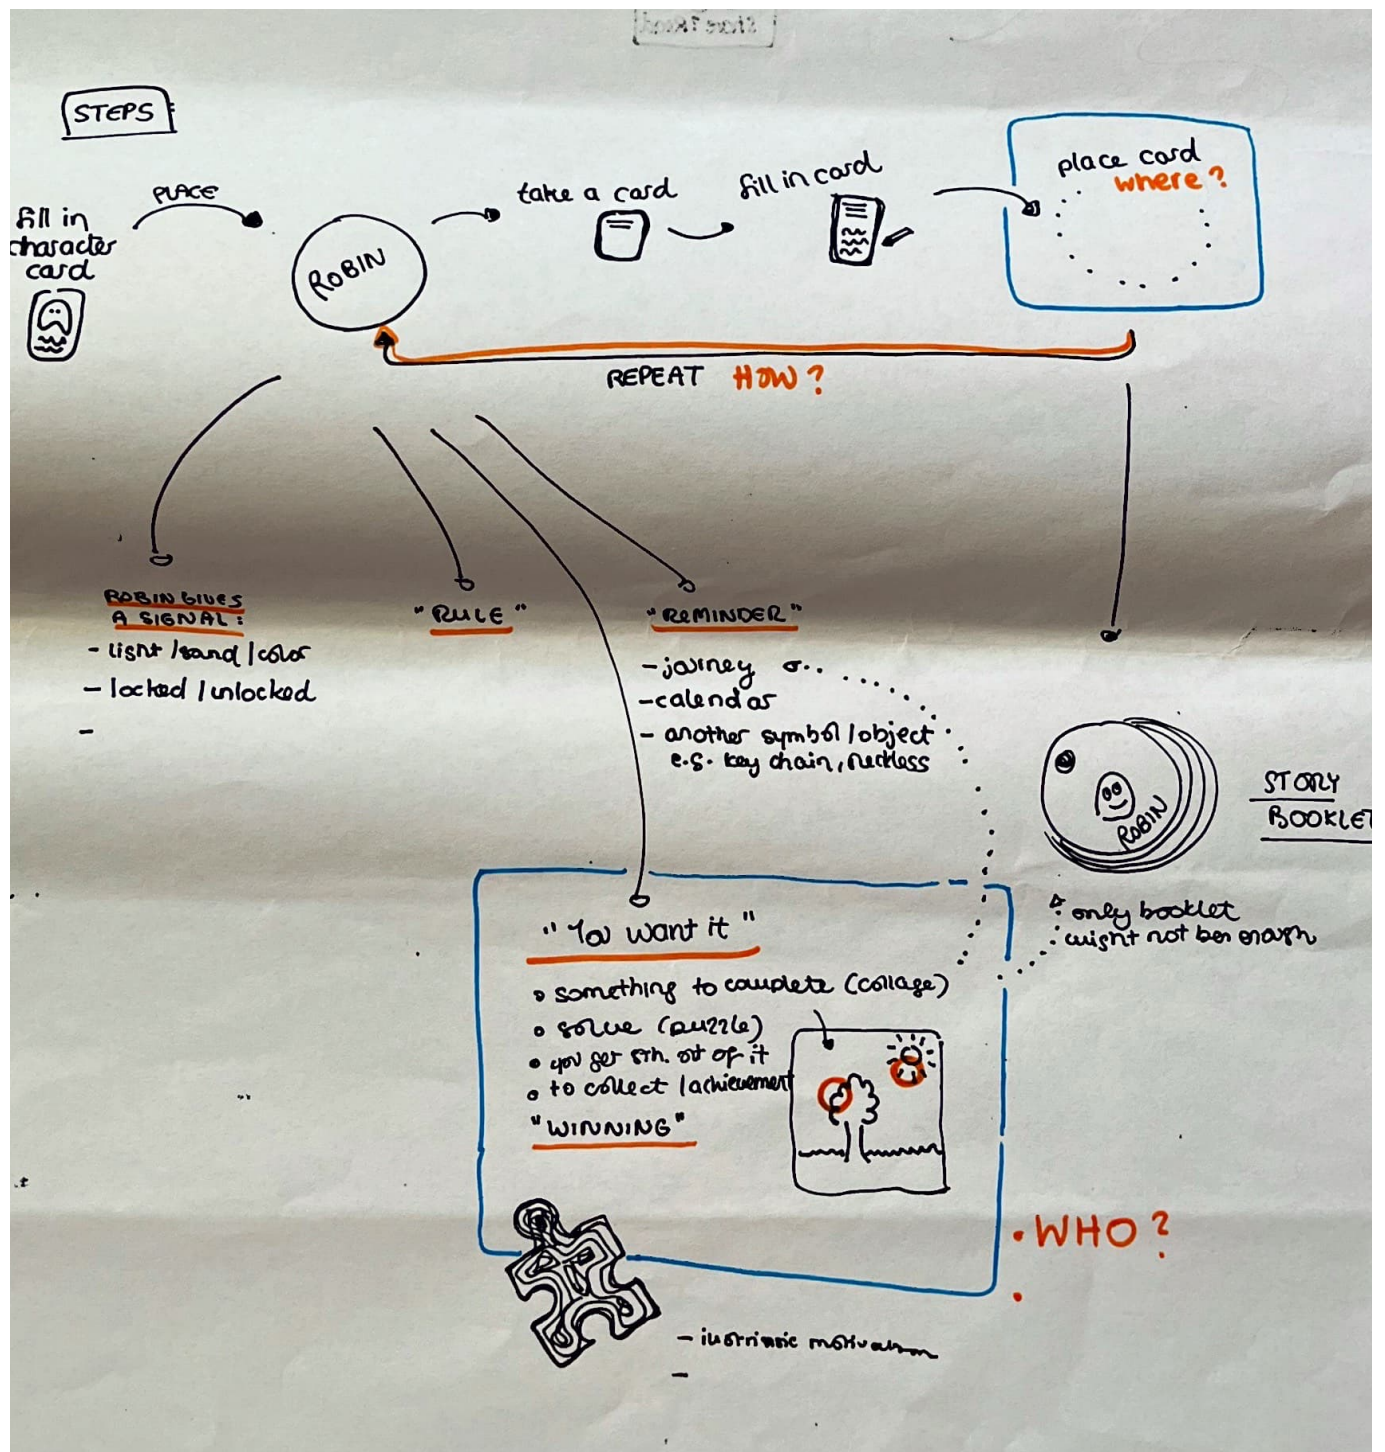 STEPS:
fill in
character
card
PLACE
ROBIN
take a card
fill in card
place card
where?
REPEAT HOW?
ROBIN GIVES
A SIGNAL:
- light /sound /color
- locked /unlocked
-
"RULE"
"REMINDER"
- journey
- calendar
- another symbol /object
e.g. key chain, neckless
ROBIN
STORY
BOOKLET
only booklet
might not be enough
"You want it"
something to complete (collage)
solve (puzzle)
you get sth. out of it
to collect /achievement
"WINNING"
• WHO?
•
- intrinsic motivation
-